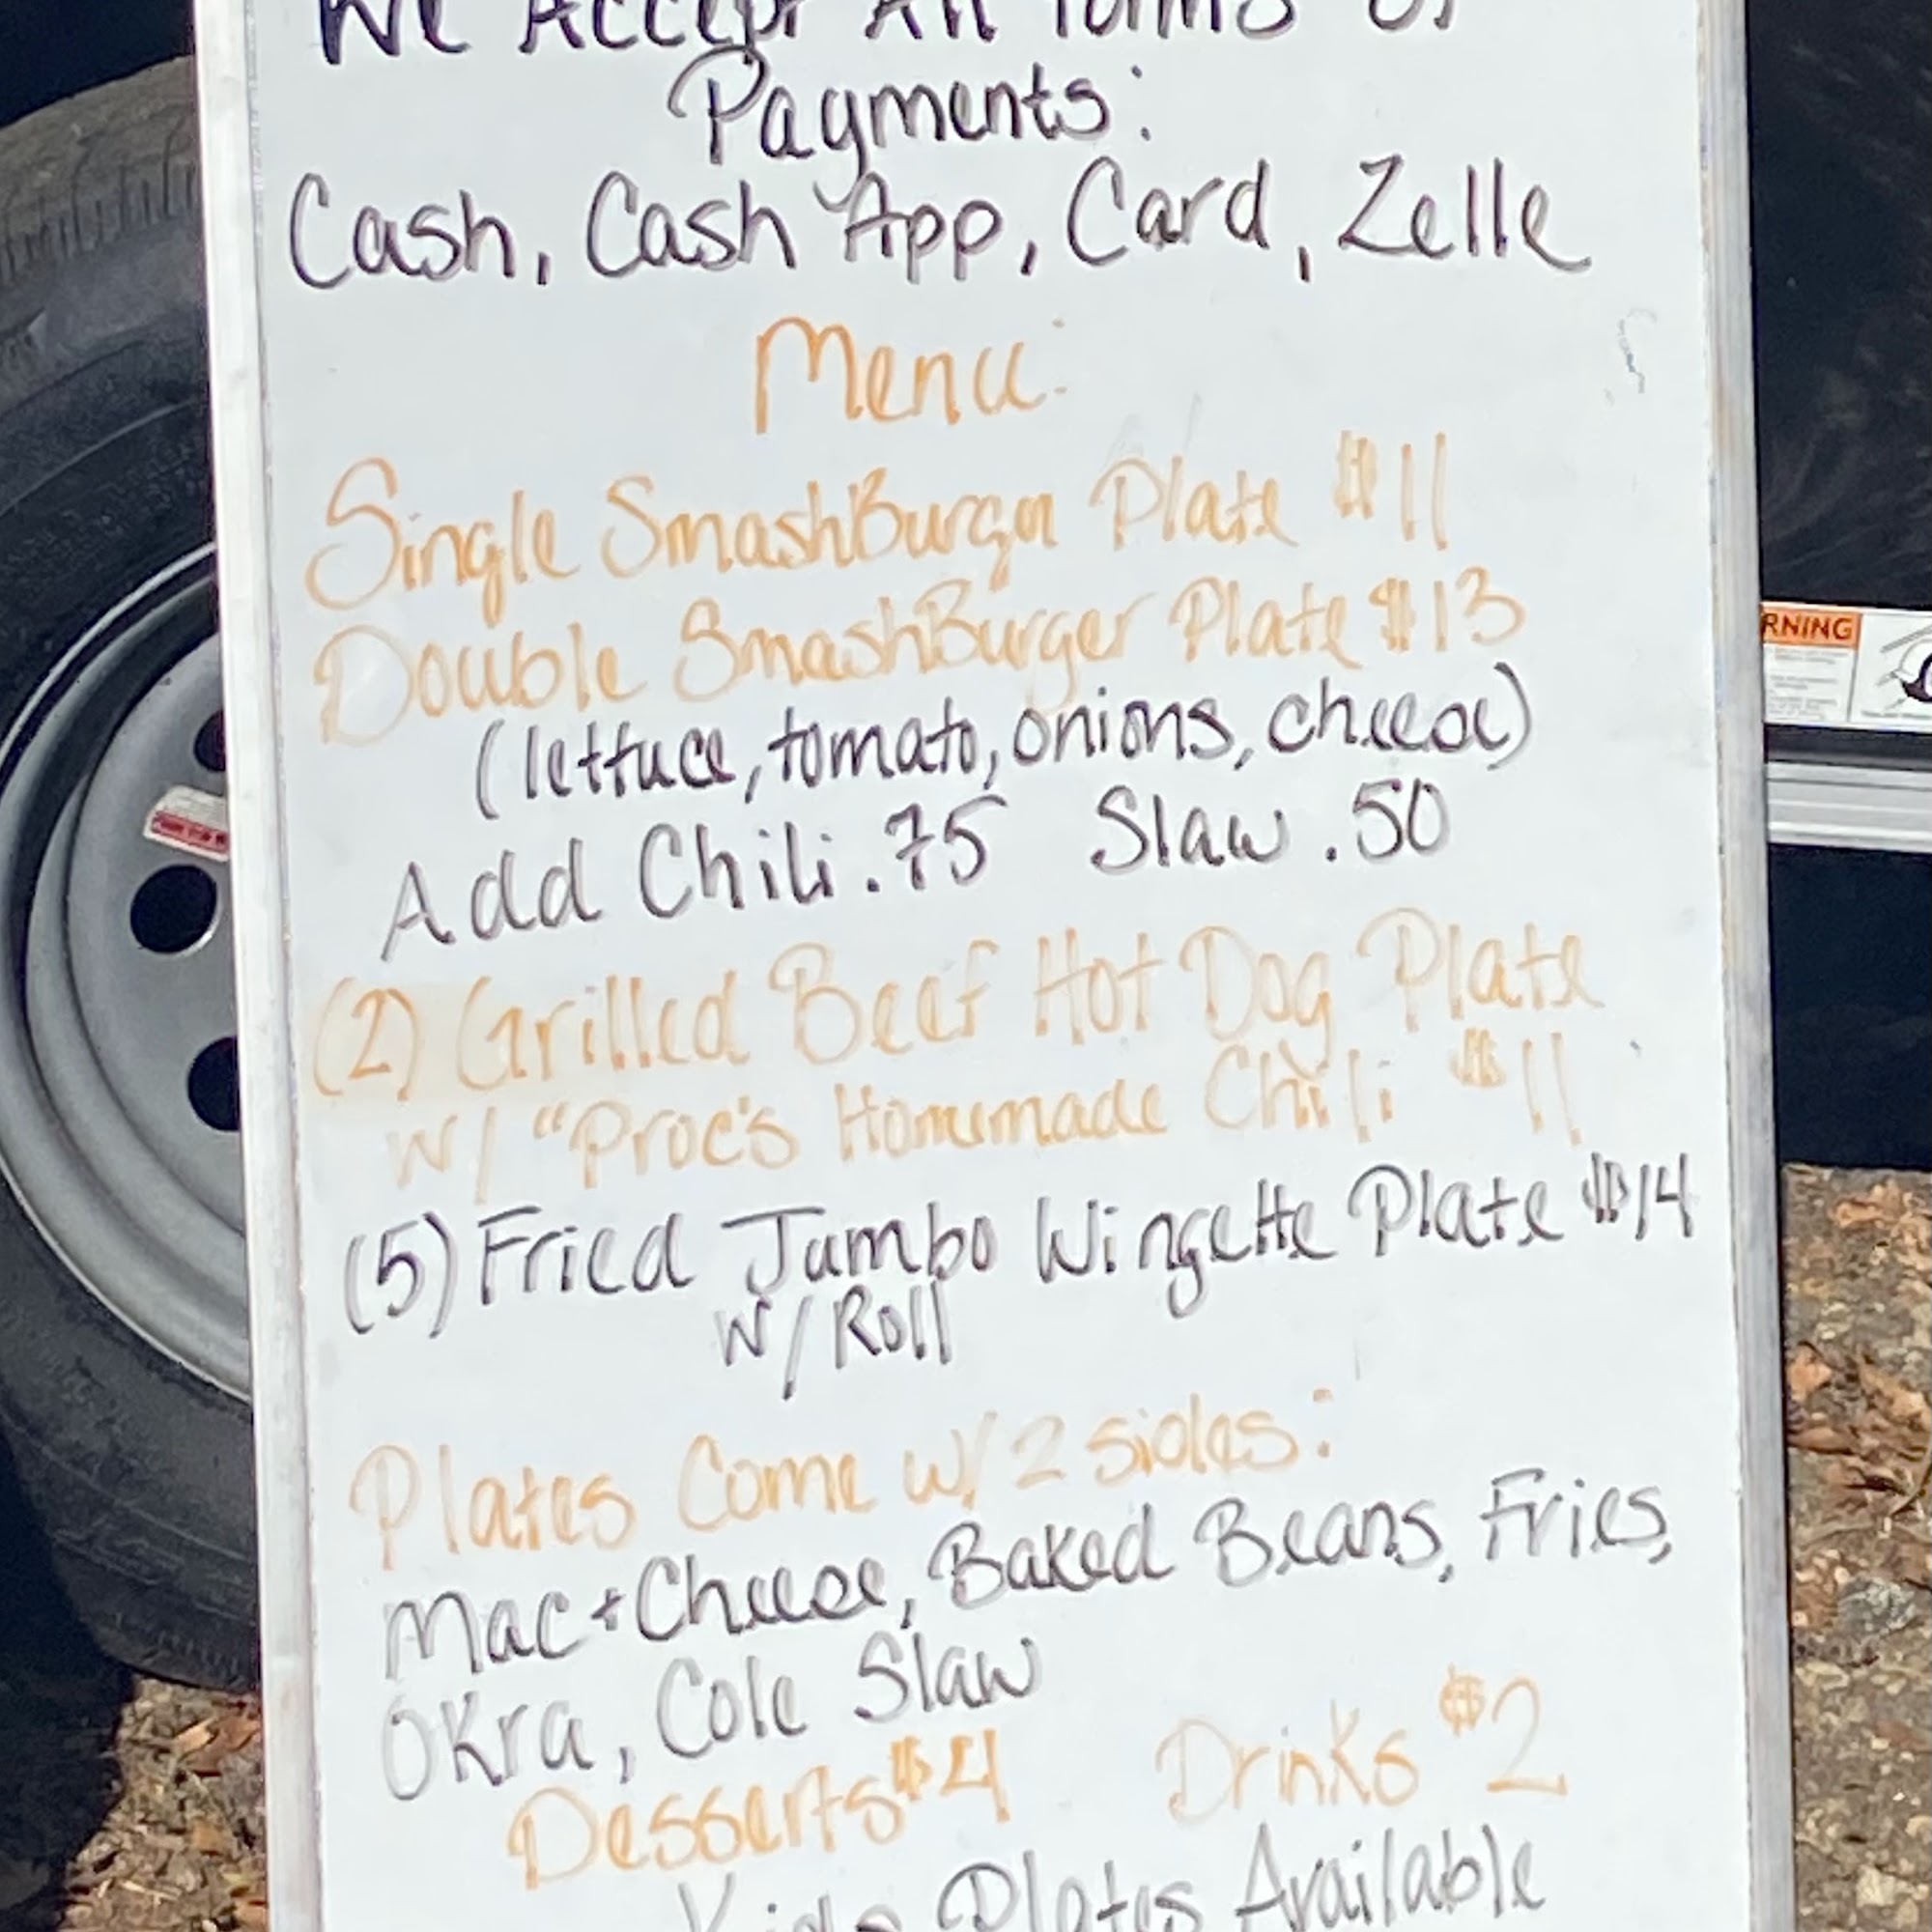 We Accept All Forms Of
Payments:
Cash, Cash App, Card, Zelle
Menu:
Single SmashBurger Plate $11
Double SmashBurger Plate $13
(lettuce, tomato, onions, cheese)
Add Chili .75 Slaw .50
(2) Grilled Beef Hot Dog Plate
w/ "Proc's Homemade Chili $11
(5) Fried Jumbo Wingette Plate $14
w/ Roll
Plates Come w/ 2 sides:
Mac + Cheese, Baked Beans, Fries,
Okra, Cole Slaw
Desserts $4 Drinks $2
Kids Plates Available
RNING